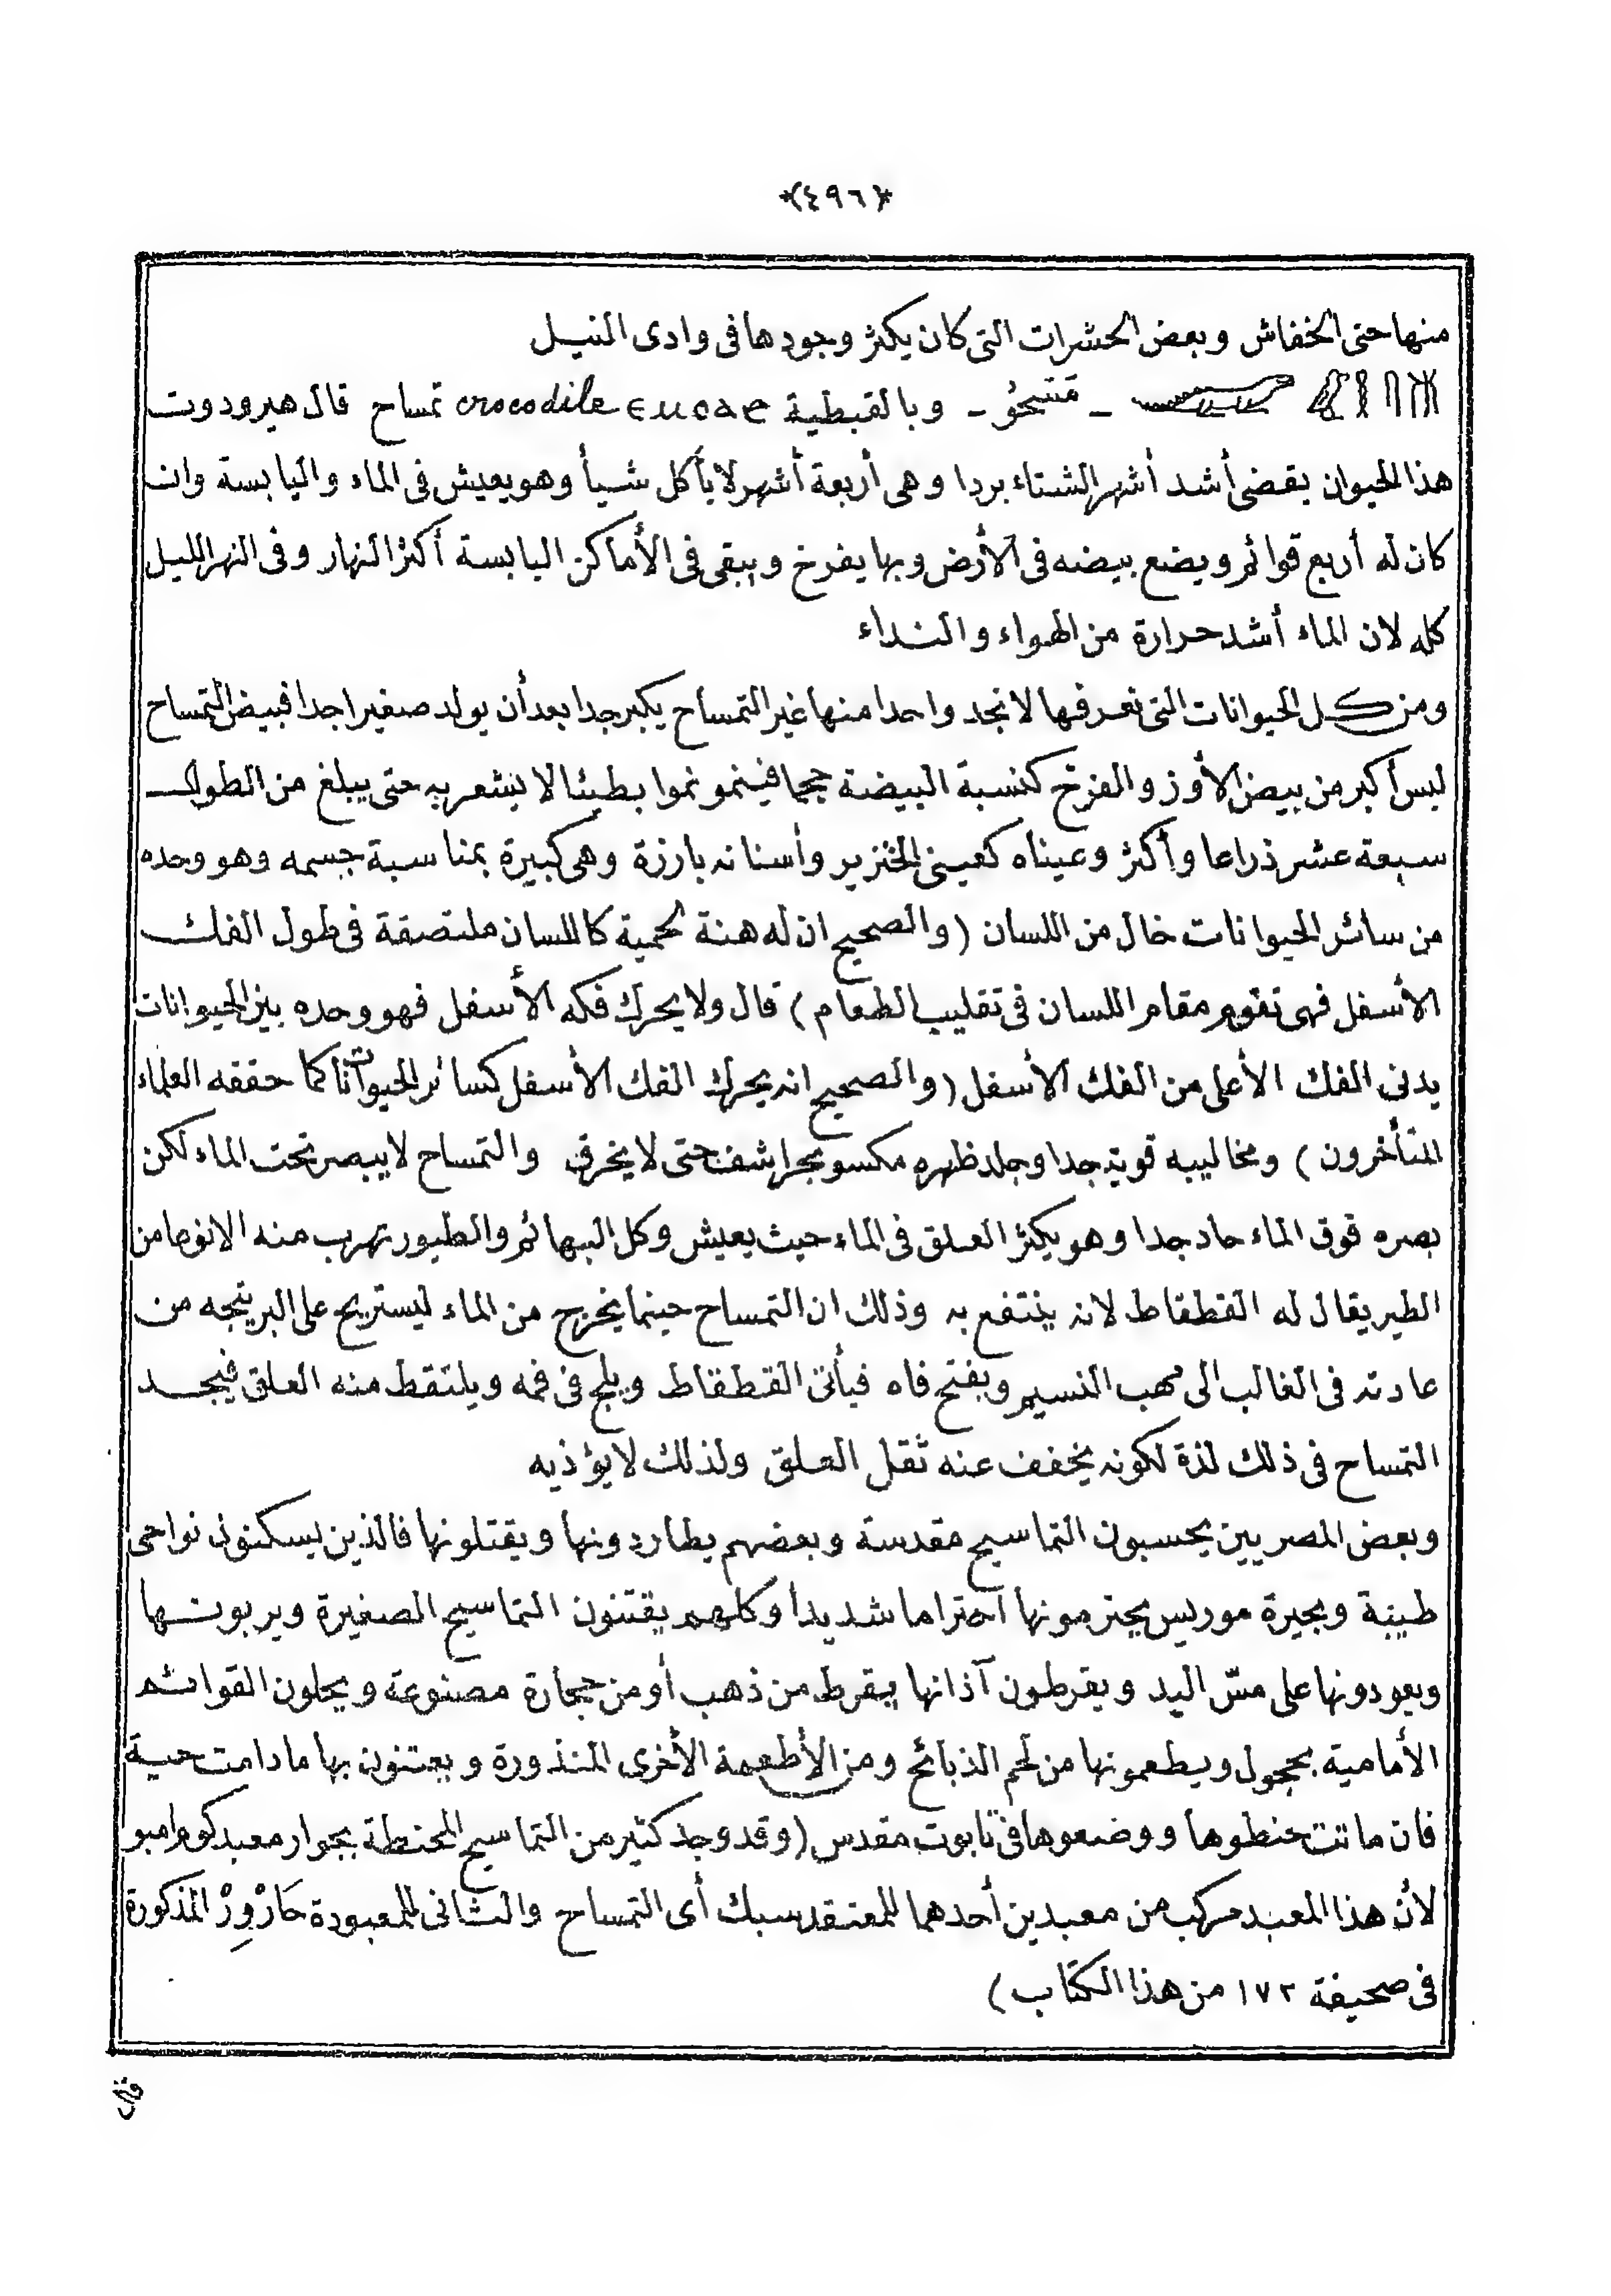 *(٤٩٦)*
منها حتى الخفاش وبعض الحشرات التى كان يكثر وجودها فى وادى النيل
– – وبالقبطية crocodile تمساح قال هيرودوت
هذا الحيوان يقضى أشد أشهر الشتاء بردا وهى أربعة أشهر لا يأكل شيأ وهو يعيش فى الماء واليابسة وان
كان له أربع قوائم ويضع بيضه فى الأرض وبها يفرخ ويبقى فى الأماكن اليابسة أكثر النهار وفى النهر الليل
كله لان الماء أشد حرارة من الهواء والنداء
ومن كل الحيوانات التى نعرفها لا نجد واحدا منها غير التمساح يكبر جدا بعد أن يولد صغيرا جدا فبيض التمساح
ليس أكبر من بيض الأوز والفرخ كنسبة البيضة حجما فينمو نموا بطيئا لا يشعر به حتى يبلغ من الطول
سبعة عشر ذراعا وأكثر وعيناه كعينى الخنزير وأسنانه بارزة وهى كبيرة بمناسبة جسمه وهو وحده
من سائر الحيوانات خال من اللسان (والصحيح ان له هنة لحمية كاللسان ملتصقة فى طول الفك
الأسفل فهى تقوم مقام اللسان فى تقليب الطعام) قال ولا يحرك فكه الأسفل فهو وحده بين الحيوانات
يدنى الفك الأعلى من الفك الأسفل (والصحيح انه يحرك الفك الأسفل كسائر الحيوانات كما حققه العلماء
المتأخرون) ومخاليبه قوية جدا وجلد ظهره مكسو بحراشف حتى لا يخرق والتمساح لا يبصر تحت الماء لكن
بصره فوق الماء حاد جدا وهو يكثر العلق فى الماء حيث يعيش وكل البهائم والطيور تهرب منه الا نوعا من
الطير يقال له القطقاط لانه ينتفع به وذلك ان التمساح حينما يخرج من الماء ليستريح على البر يتجه من
عادته فى الغالب الى مهب النسيم ويفتح فاه فيأتى القطقاط ويلج فى فمه ويلتقط منه العلق فيجد
التمساح فى ذلك لذة لكونه يخفف عنه ثقل العلق ولذلك لا يؤذيه
وبعض المصريين يحسبون التماسيح مقدسة وبعضهم يطاردونها ويقتلونها فالذين يسكنون نواحى
طيبة وبحيرة موريس يحترمونها احتراما شديدا وكلهم يقتنون التماسيح الصغيرة ويربونها
ويعودونها على مسّ اليد ويقرطون آذانها بقرط من ذهب أو من حجارة مصنوعة ويحلون القوائم
الأمامية بحجول ويطعمونها من لحم الذبائح ومن الأطعمة الأخرى المنذورة ويعتنون بها ما دامت حية
فان ماتت حنطوها ووضعوها فى تابوت مقدس (وقد وجد كثير من التماسيح المحنطة بجوار معبد كوم امبو
لأن هذا المعبد مركب من معبدين أحدهما للمعتقد سبك أى التمساح والثانى للمعبودة حَارْوِرْ المذكورة
فى صحيفة ١٧٢ من هذا الكتاب)